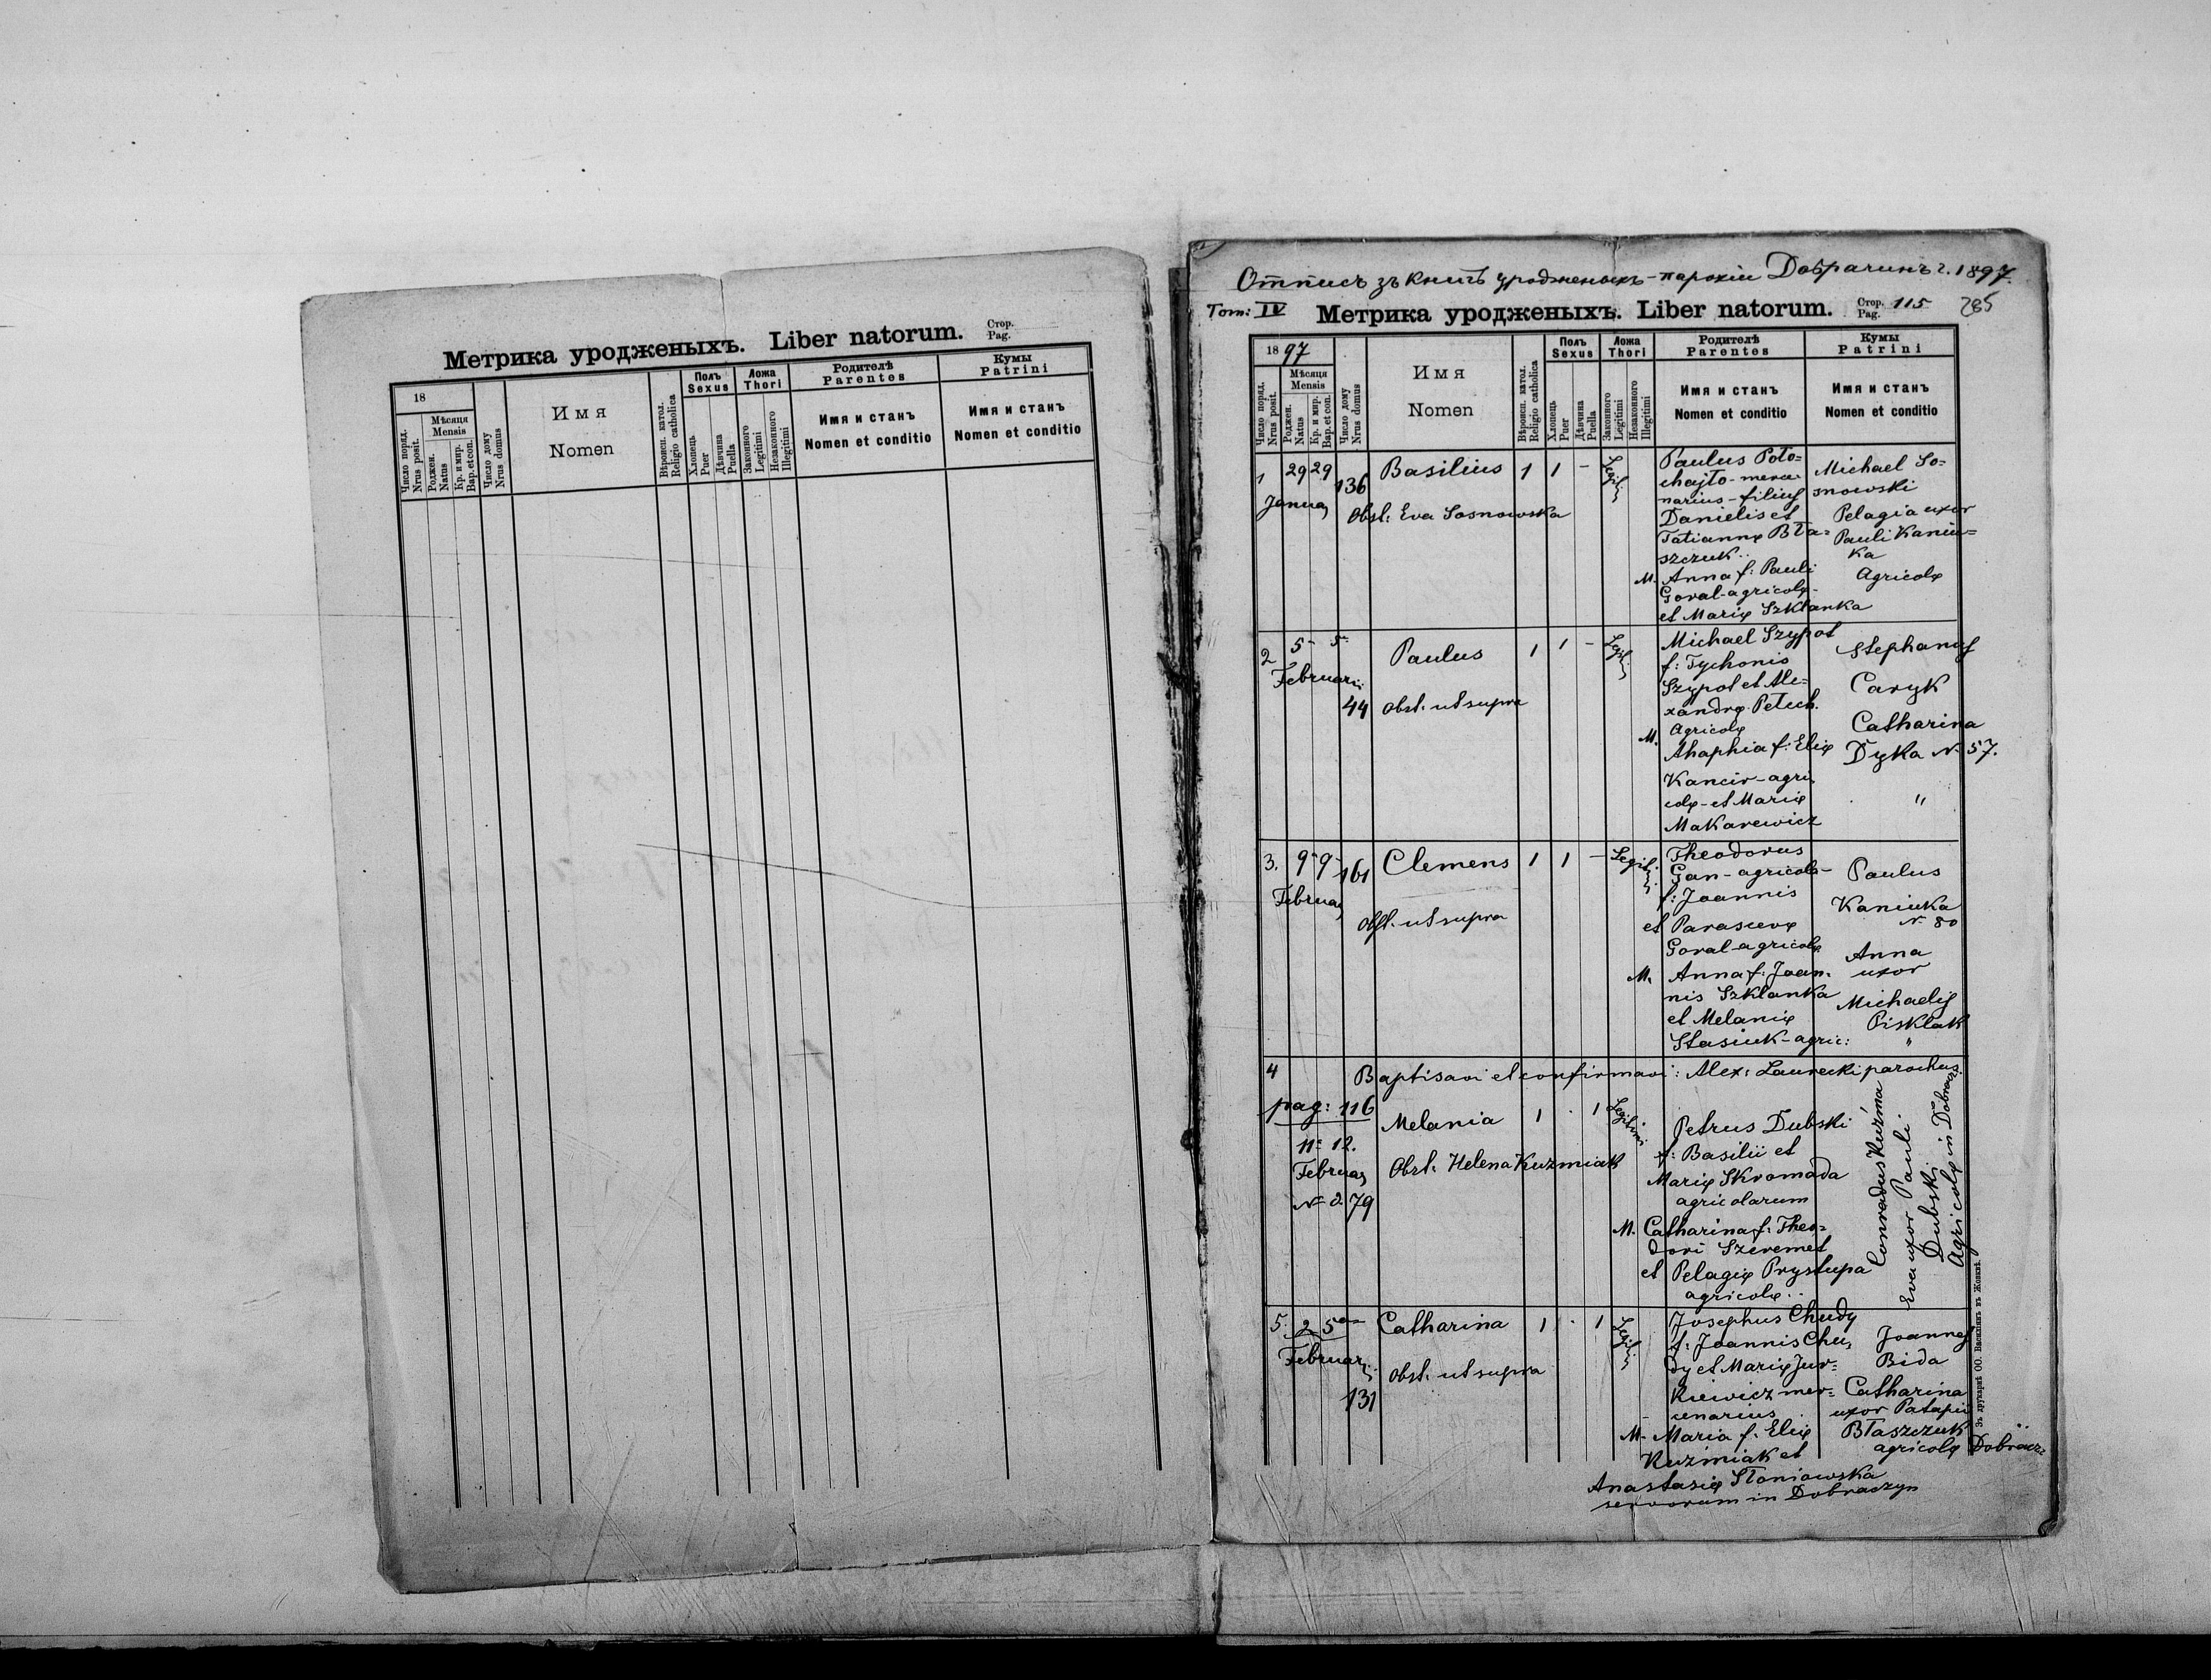 Метрика уродженыхъ. Liber natorum. Стор. Pag.
18
Число поряд. Nrus posit.
Мѣсяця Mensis
Рожден. Natus
Кр. и мир. Bap. et con.
Число дому Nrus domus
Имя
Nomen
Вѣроисп. катол. Religio catholica
Полъ Sexus
Хлопець Puer
Дѣвчина Puella
Ложа Thori
Законного Legitimi
Незаконного Illegitimi
Родителѣ Parentes
Имя и станъ
Nomen et conditio
Кумы Patrini
Имя и станъ
Nomen et conditio
Отписъ зъ книгъ уродженыхъ - парохіи Добрачинъ г. 1897.
Tom: IV Метрика уродженыхъ. Liber natorum. Стор. Pag. 115 285
1897
Число поряд. Nrus posit.
Мѣсяця Mensis
Рожден. Natus
Кр. и мир. Bap. et con.
Число дому Nrus domus
Имя
Nomen
Вѣроисп. катол. Religio catholica
Полъ Sexus
Хлопець Puer
Дѣвчина Puella
Ложа Thori
Законного Legitimi
Незаконного Illegitimi
Родителѣ Parentes
Имя и станъ
Nomen et conditio
Кумы Patrini
Имя и станъ
Nomen et conditio
1 29 29 136 Basilius 1 1 -
Januar
Obst: Eva Sosnowska
Paulus Poto=
chajło - merce
narius - filius
Danielis et
Tatiannę Bła=
szczuk..
M. Anna f: Pauli
Goral - agricolę -
et Marię Szklanka
Michael So=
snowski
Pelagia uxor
Pauli Kaniu=
ka
Agricolę
2 5 - 5 - Paulus 1 1 -
Februarii
44 Obst. ut supra
Michael Szypot
f: Tychonis
Szypot et Ale=
xandrę Petech.
Agricolę
M. Ahaphia f: Elię
Kancir - agri
colę - et Marię
Makarewicz
Stephanus
Caryk
Catharina
Dyka N. 57.
"
3. 9 - 9 - 161 Clemens 1 1 - Legit.
Februar
Obst. ut supra
Theodorus
Gan - agricola -
f: Joannis
et Parascevę
Goral - agricolę
M. Anna f: Joan=
nis Szklanka
et Melanię
Stasiuk - agric:
Paulus
Kaniuka
N. 80
Anna
uxor
Michaelis
Pisklak
"
4 Baptisavi et confirmavi: Alex: Laurecki parochus.
pag: 116 Melania 1 . 1 Legitimi
11 - 12.
Februar Obst: Helena Kuzmiak
N - 2 79
Petrus Dubski
f: Basilii et
Marię Skromada
agricolarum
M. Catharina f: Theo=
dori Szeremet
et Pelagię Prystupa
agricolę..
Conradus Kuźma
Eva uxor Pauli
Dubski
Agricolę in Dobracz.
5. 2 5 Catharina 1 . 1
Februarii
Obst: ut supra
131
Josephus Chudy
f: Joannis Chu=
dy et Marię Jur=
kiewicz mer=
cenarius
M. Maria f. Elię
Kuźmiak et
Anastasię Słoniowska
servorum in Dobraczyn
Joannes
Bida
Catharina
uxor Patapii
Błaszczuk
agricolę Dobracz:
Зъ друкарнѣ ОО. Василіянъ въ Жовквѣ.